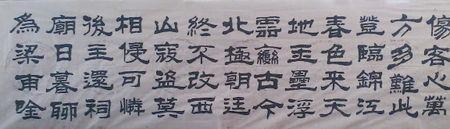 傷客心萬
方多難此
登臨錦江
春色來天
地玉壘浮
雲變古今
北極朝廷
終不改西
山寇盜莫
相侵可憐
後主還祠
廟日暮聊
為梁甫吟